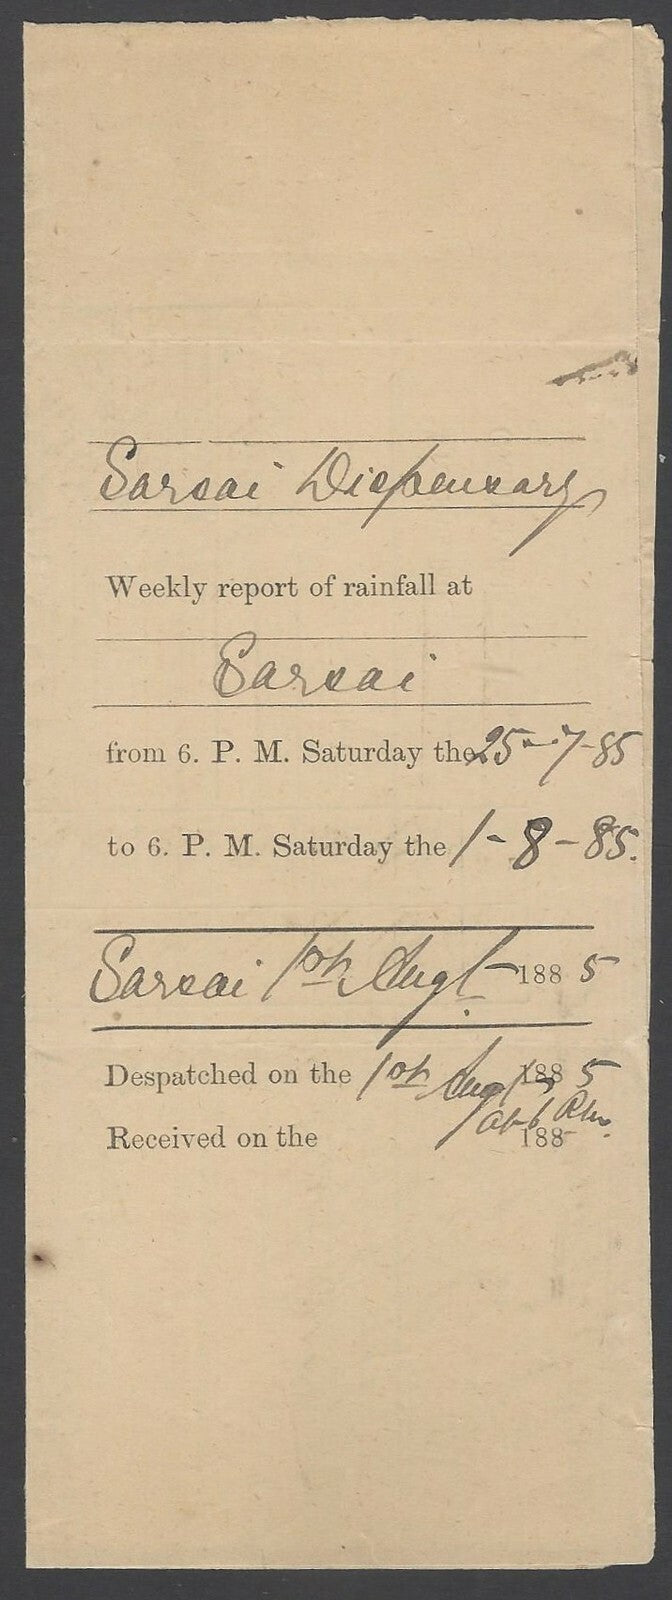 Sarsai Dispensary
Weekly report of rainfall at
Sarsai
from 6. P. M. Saturday the 25-7-85
to 6. P. M. Saturday the 1-8-85.
Sarsai 1st Augt 1885
Despatched on the 1st Augt 1885
at 6 P.m.
Received on the 188